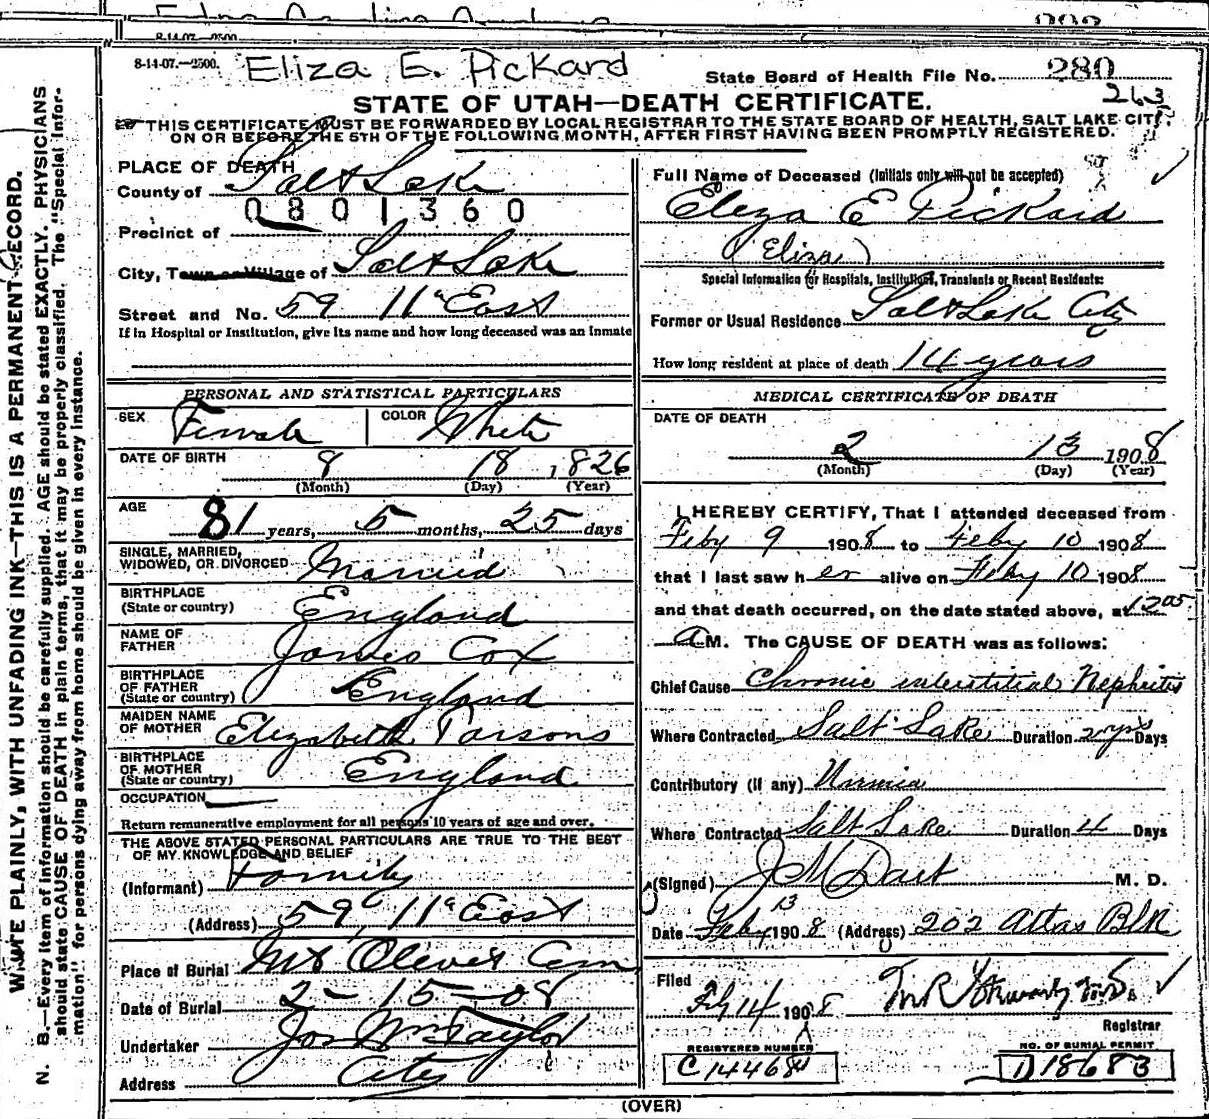 8-14-07.—2500. Eliza E. Pickard
State Board of Health File No. 280
263
STATE OF UTAH—DEATH CERTIFICATE.
THIS CERTIFICATE MUST BE FORWARDED BY LOCAL REGISTRAR TO THE STATE BOARD OF HEALTH, SALT LAKE CITY,
ON OR BEFORE THE 5TH OF THE FOLLOWING MONTH, AFTER FIRST HAVING BEEN PROMPTLY REGISTERED.
PLACE OF DEATH
County of Salt Lake
0801360
Precinct of
City, Town or Village of Salt Lake
Street and No. 59 11" East
If in Hospital or Institution, give its name and how long deceased was an inmate
PERSONAL AND STATISTICAL PARTICULARS
SEX Female COLOR White
DATE OF BIRTH 8 18, 1826
(Month) (Day) (Year)
AGE 81 years, 5 months, 25 days
SINGLE, MARRIED,
WIDOWED, OR DIVORCED Married
BIRTHPLACE
(State or country) England
NAME OF
FATHER James Cox
BIRTHPLACE
OF FATHER
(State or country) England
MAIDEN NAME
OF MOTHER Elizabeth Parsons
BIRTHPLACE
OF MOTHER
(State or country) England
OCCUPATION
Return remunerative employment for all persons 10 years of age and over.
THE ABOVE STATED PERSONAL PARTICULARS ARE TRUE TO THE BEST
OF MY KNOWLEDGE AND BELIEF
(Informant) Family
(Address) 59 11" East
Place of Burial Mt Olivet Cem
Date of Burial 2-15-08
Undertaker Jos Wm Taylor
Address City
Full Name of Deceased (Initials only will not be accepted)
Eliza E Pickard
(Eliza)
Special Information for Hospitals, Institutions, Transients or Recent Residents:
Former or Usual Residence Salt Lake City
How long resident at place of death 14 years
MEDICAL CERTIFICATE OF DEATH
DATE OF DEATH
2 13 1908
(Month) (Day) (Year)
I HEREBY CERTIFY, That I attended deceased from
Feby 9 1908 to Feby 10 1908
that I last saw her alive on Feby 10 1908
and that death occurred, on the date stated above, at 12 05
A M. The CAUSE OF DEATH was as follows:
Chief Cause Chronic interstitial Nephritis
Where Contracted Salt Lake Duration 2 yrs Days
Contributory (if any) Uremia
Where Contracted Salt Lake Duration 4 Days
(Signed) J M Dart M. D.
Date Feby 13 1908 (Address) 202 Atlas Blk
Filed
1908
Registrar
REGISTERED NUMBER
C 14468
NO. OF BURIAL PERMIT
D 18683
(OVER)
WRITE PLAINLY, WITH UNFADING INK—THIS IS A PERMANENT RECORD.
N. B.—Every item of information should be carefully supplied. AGE should be stated EXACTLY. PHYSICIANS
should state CAUSE OF DEATH in plain terms, that it may be properly classified. The "Special Infor-
mation" for persons dying away from home should be given in every instance.